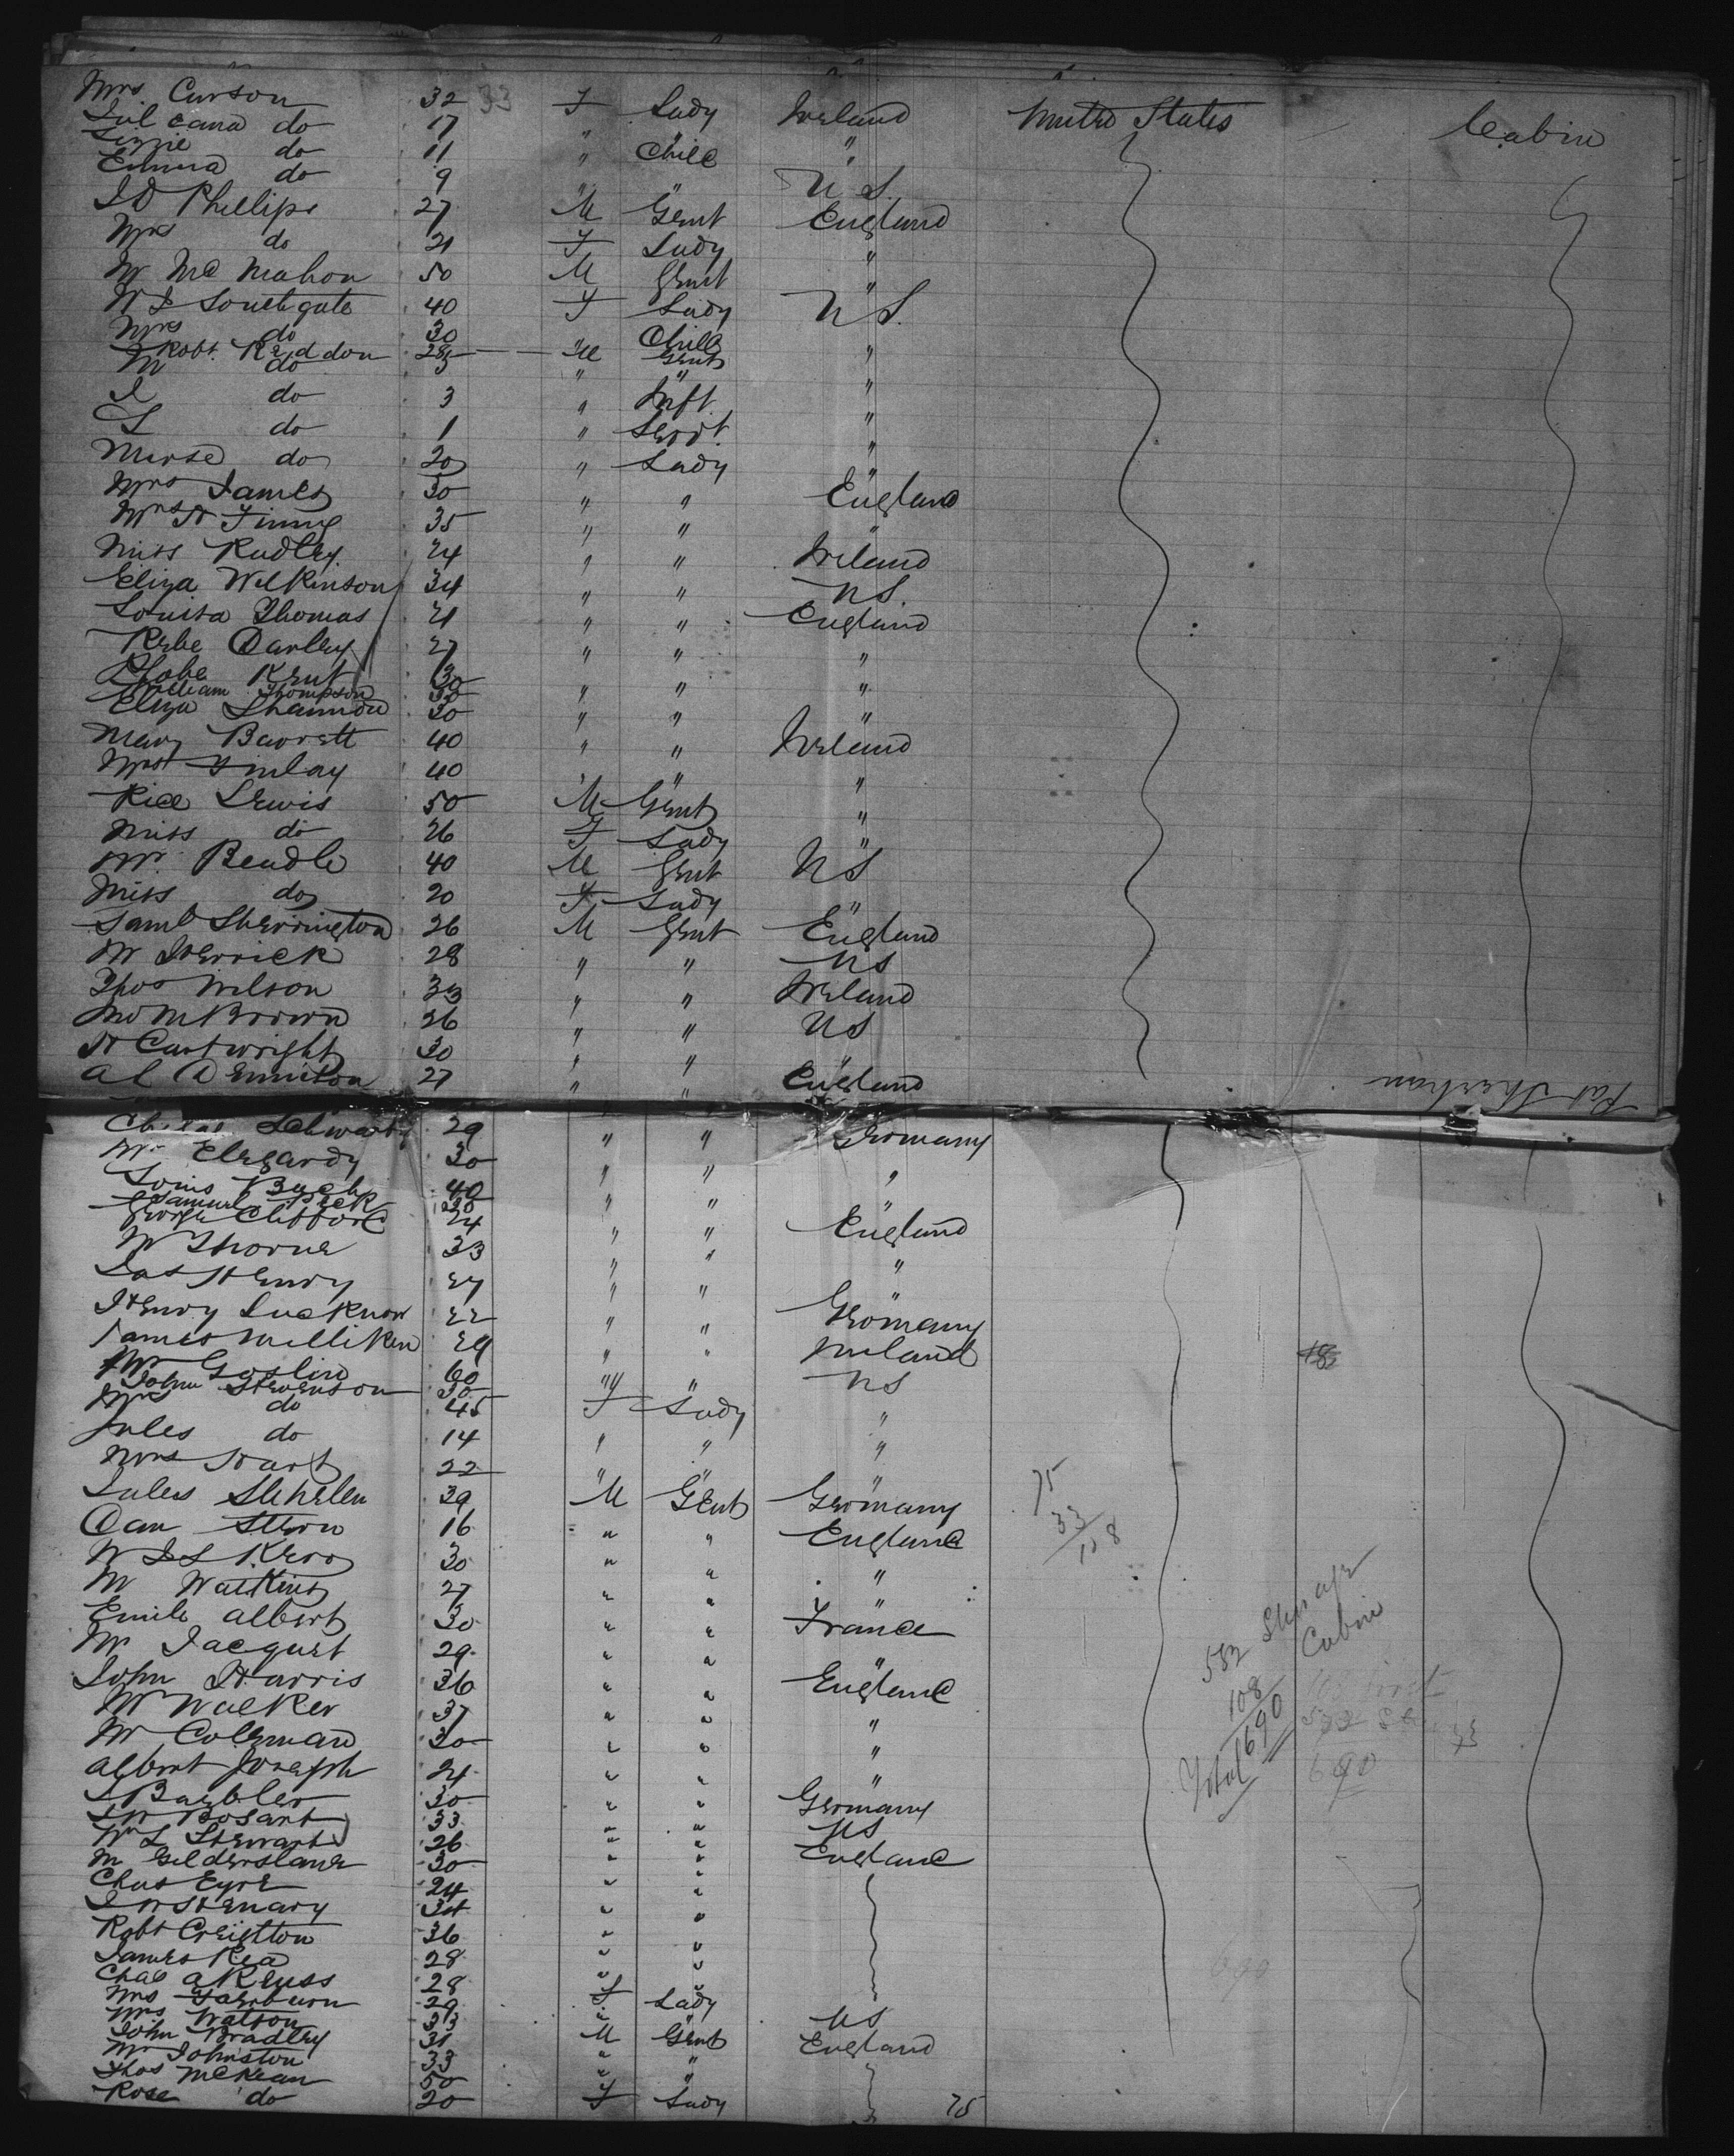 Mrs Curson 32 33 F Lady Ireland United States Cabin
do 17 " " "
Lizzie do 11 " Child "
Emma do 9 " " U.S.
J D Phillips 27 M Gent England
Mrs do 21 F Lady "
Mr McMahon 50 M Gent "
W J Southgate 40 F Lady U.S.
Mrs do 30 Child
Robt. 28 M Gent "
M do 5 " "
J do 3 " Inft. "
L do 1 " Servt. "
Nurse do 20 " Lady "
Mrs James 30 " " England
Mrs H Finny 35 " " "
Miss Radley 24 " " Ireland
Eliza Wilkinson 34 " " U.S.
Louisa Thomas 21 " " England
Darley 27 " " "
Phobe Kent 30 " " "
William Thompson 30
Eliza Shannon 30 " " "
Mary Barrett 40 " " Ireland
Mrs Finlay 40 " " "
Rice Lewis 50 M Gent "
Miss do 26 F Lady "
Mr Beadle 40 M Gent US
Miss do 20 F Lady "
Saml Sherrington 26 M Gent England
Mr Herrick 28 " " US
Thos Wilson 33 " " Ireland
Jno M Brown 26 " " US
H Cartwright 30 " " "
Al Denniston 27 " " England
Pat Sheehan
Schwartz 29 " " Germany
Mr 30 " " "
Louis Bach 40 " " "
Samuel Peck 30
George Clifford 24 " " England
W Thorne 33 " " "
Jas Henry 27 " " "
Henry Lucknow 22 " " Germany
James Milliken 29 " " Ireland
Mr Goslin 60 " " US
John Stevenson 30
Mrs do 45 F Lady "
Jules do 14 " " "
Mrs Hart 22 " " "
Jules 39 M Gent Germany
Dan Stern 16 " " England
W J S Kerr 30 " " "
M Watkins 27 " " "
Emile Albert 30 " " France
Mr Jacquet 29 " " "
John Harris 36 " " England
Mr Walker 37 " " "
Mr Coleman 30 " " "
Albert Joseph 24 " " "
Baebler 30 " " Germany
Bogart 33 " " US
Wm L Stewart 26 " " England
M Gilderslane 30 " "
Chas Eyre 24 " "
34 " "
Robt Creighton 36 " "
James Rea 28 " "
Chas A Reuss 28 " "
Mrs Fairburn 29 F Lady
Mrs Watson 33 " " US
John Bradley 31 M Gent England
Mr Johnston 33 " "
Thos McKean 50 " "
Rose do 20 F Lady 75
75
33
108
582 Steerage
108 Cabin
Total 690
690